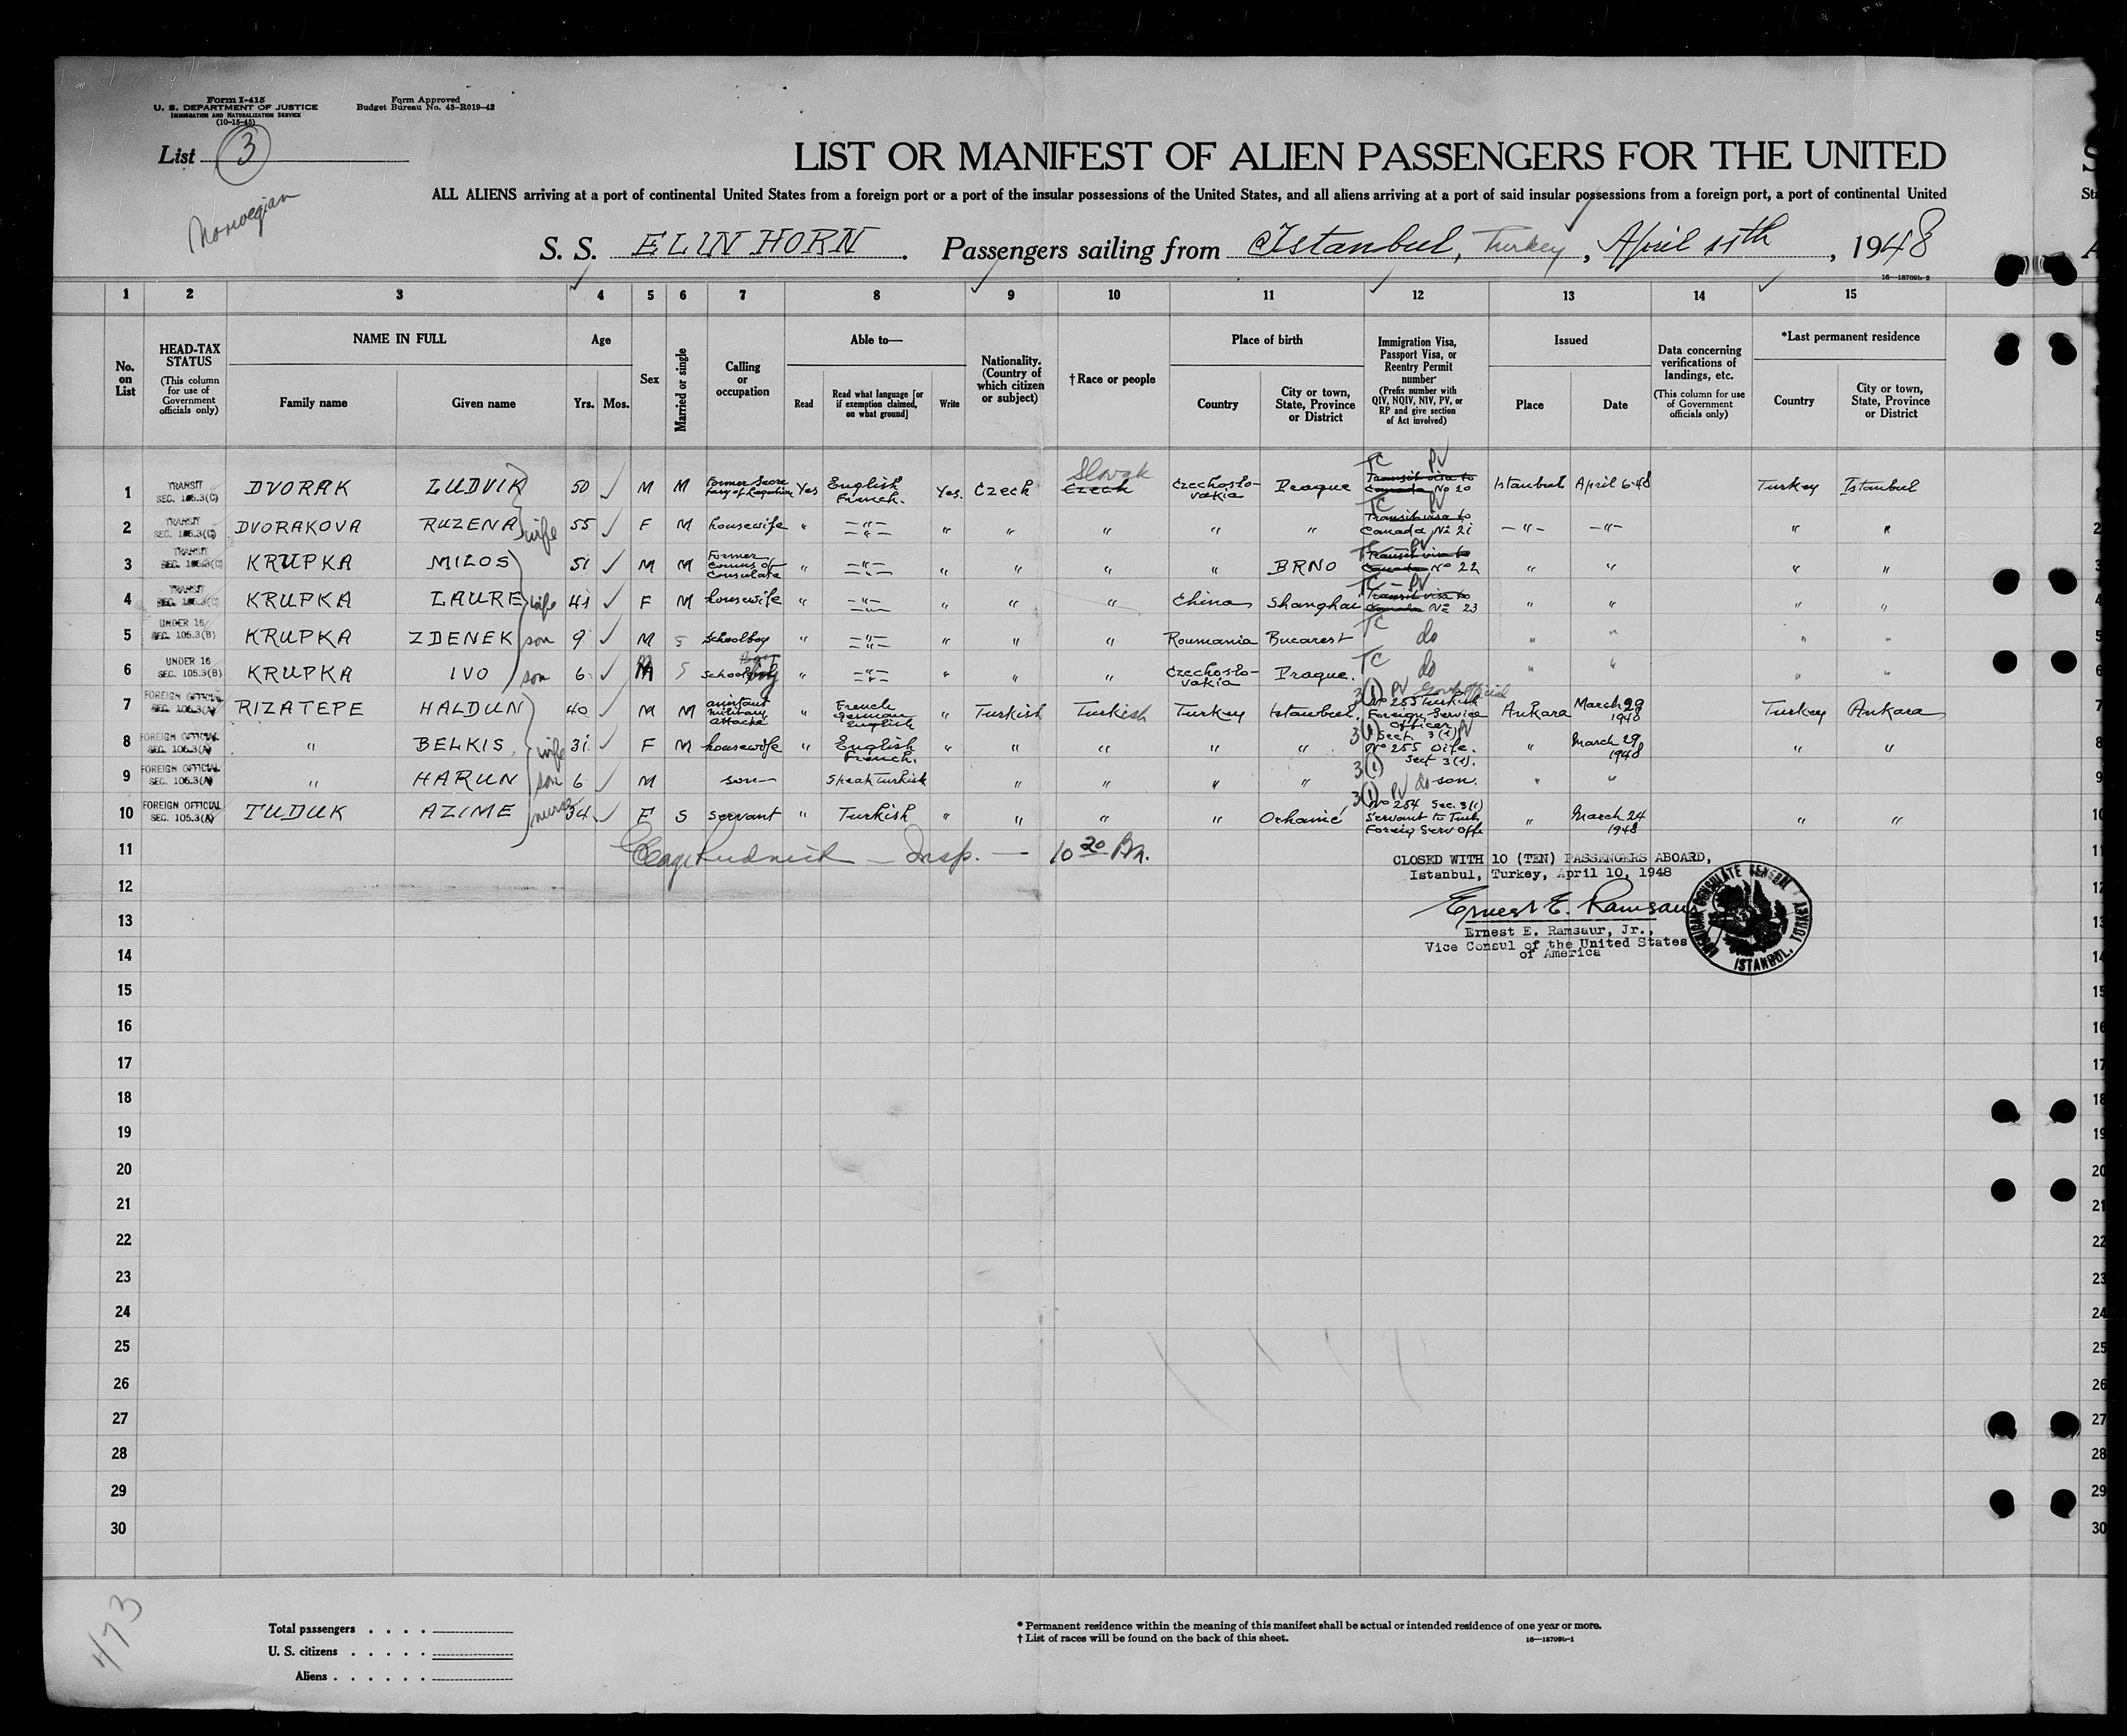 Form I-415
U. S. DEPARTMENT OF JUSTICE
IMMIGRATION AND NATURALIZATION SERVICE
(10-15-45)
Form Approved
Budget Bureau No. 43-R019-42
List 3
Norwegian
LIST OR MANIFEST OF ALIEN PASSENGERS FOR THE UNITED
ALL ALIENS arriving at a port of continental United States from a foreign port or a port of the insular possessions of the United States, and all aliens arriving at a port of said insular possessions from a foreign port, a port of continental United
S. S. ELIN HORN. Passengers sailing from Istanbul, Turkey, April 11th, 1948
16—18709b-2
1 2 3 4 5 6 7 8 9 10 11 12 13 14 15
No. on List
HEAD-TAX STATUS (This column for use of Government officials only)
NAME IN FULL
Family name
Given name
Age
Yrs. Mos.
Sex
Married or single
Calling or occupation
Able to—
Read
Read what language [or if exemption claimed, on what ground]
Write
Nationality. (Country of which citizen or subject)
†Race or people
Place of birth
Country
City or town, State, Province or District
Immigration Visa, Passport Visa, or Reentry Permit number (Prefix number with QIV, NQIV, NIV, PV, or RP and give section of Act involved)
Issued
Place
Date
Data concerning verifications of landings, etc. (This column for use of Government officials only)
*Last permanent residence
Country
City or town, State, Province or District
1 TRANSIT SEC. 105.3(C) DVORAK LUDVIK 50 M M Former Secretary of Legation Yes English French. Yes. Czech Slovak Czech Czechoslovakia Prague TC PV Transit visa to Canada No 20 Istanbul April 6-48 Turkey Istanbul
2 TRANSIT SEC. 105.3(C) DVORAKOVA RUZENA wife 55 F M housewife " —"— " " " " " TC PV Transit visa to Canada No 21 —"— —"— " "
3 TRANSIT SEC. 105.3(C) KRUPKA MILOS 51 M M Former Couns of Consulate " —"— " " " " BRNO TC PV Transit visa to Canada No 22 " " " "
4 TRANSIT SEC. 105.3(C) KRUPKA LAURE wife 41 F M housewife " —"— " " " China Shanghai TC — PV Transit visa to Canada No 23 " " " "
5 UNDER 16 SEC. 105.3(B) KRUPKA ZDENEK son 9 M S schoolboy " —"— " " " Roumania Bucarest TC do " " " "
6 UNDER 16 SEC. 105.3(B) KRUPKA IVO son 6 M S schoolboy " —"— " " " Czechoslovakia Prague. TC do " " " "
7 FOREIGN OFFICIAL SEC. 105.3(A) RIZATEPE HALDUN 40 M M assistant military attaché " French German English " Turkish Turkish Turkey Istanbul 3(1) PV Govt Official No 255 Turkish Foreign Service Officer Sect. 3(1) Ankara March 29 1948 Turkey Ankara
8 FOREIGN OFFICIAL SEC. 105.3(A) " BELKIS, wife 31 F M housewife " English French. " " " " " 3(1) PV No 255 Wife. Sect 3(1). " March 29 1948 " "
9 FOREIGN OFFICIAL SEC. 105.3(A) " HARUN son 6 M son— Speak Turkish " " " " 3(1) PV do son. " "
10 FOREIGN OFFICIAL SEC. 105.3(A) TUDUK AZIME nurse 34 F S servant " Turkish " " " " Orhanié 3(1) No 254 Sec. 3(1) Servant to Turk Foreig Serv Offi " March 24 1948 " "
11 Rudnick — Insp. — 10 20
CLOSED WITH 10 (TEN) PASSENGERS ABOARD,
Istanbul, Turkey, April 10, 1948
Ernest E. Ramsaur
Ernest E. Ramsaur, Jr.,
Vice Consul of the United States
of America
AMERICAN CONSULATE GENERAL ISTANBUL, TURKEY
12
13
14
15
16
17
18
19
20
21
22
23
24
25
26
27
28
29
30
473
Total passengers . . . .
U. S. citizens . . . . .
Aliens . . . . . .
* Permanent residence within the meaning of this manifest shall be actual or intended residence of one year or more.
† List of races will be found on the back of this sheet.
16—18709b-1